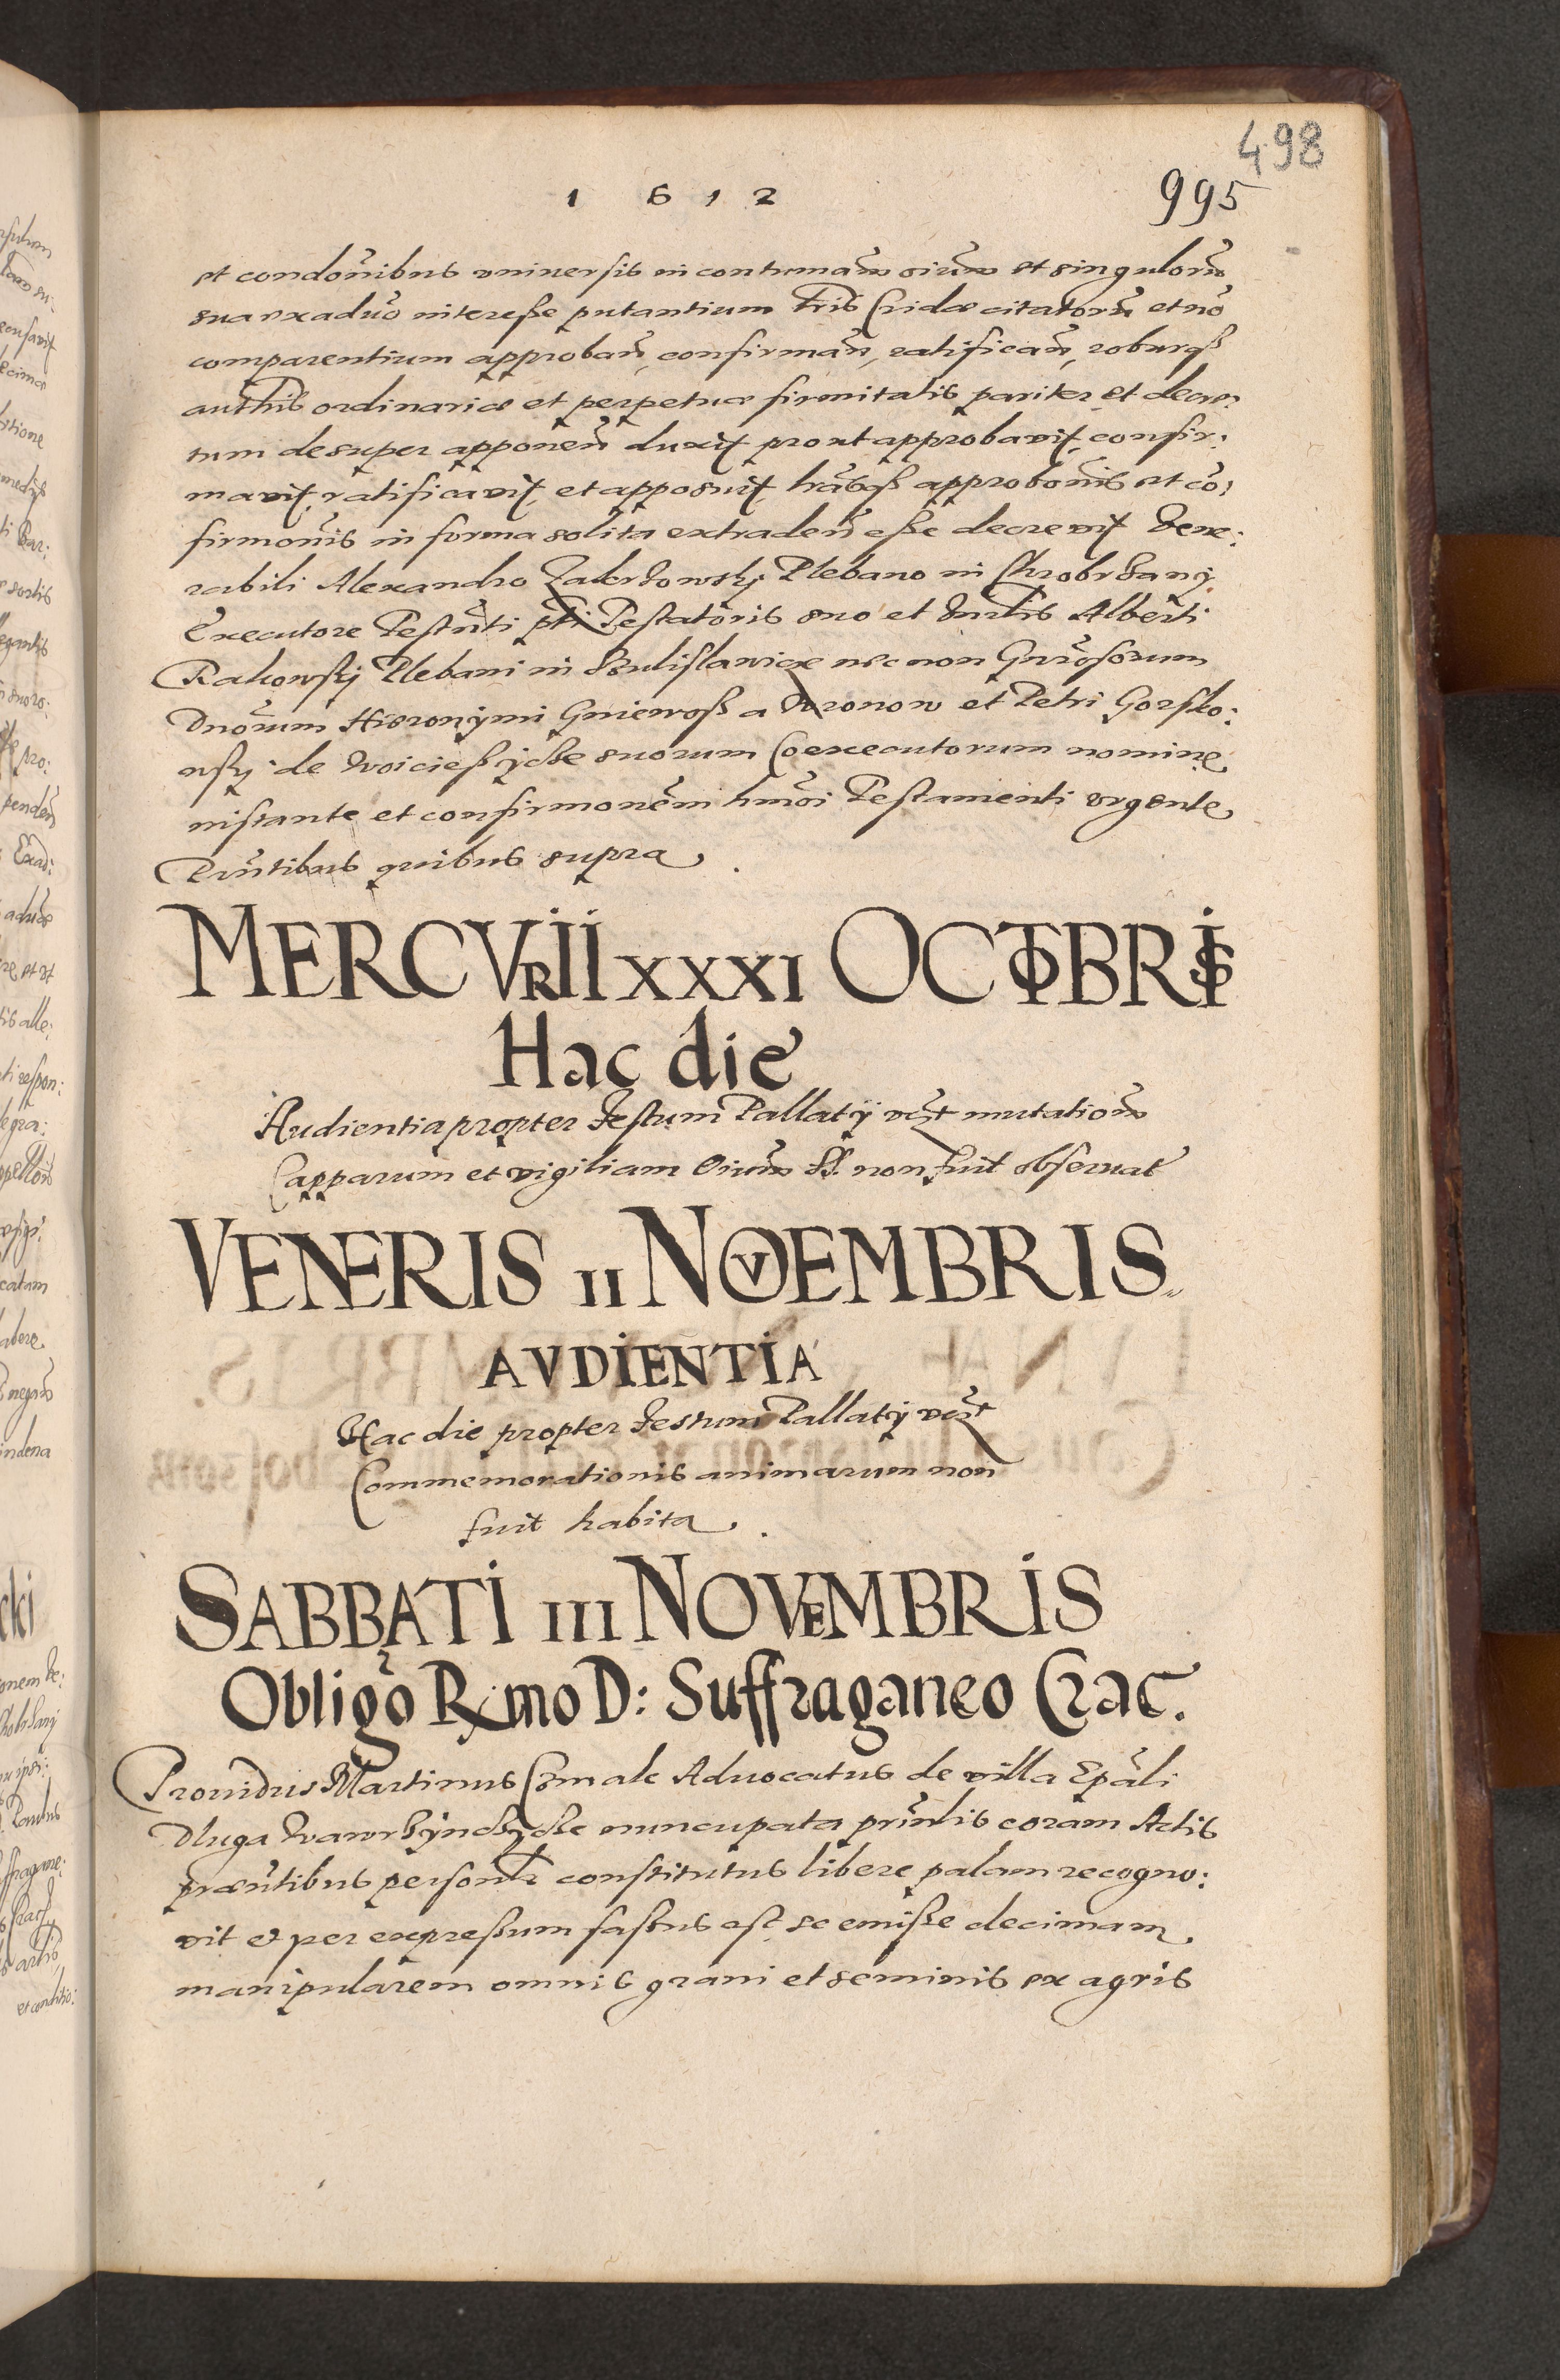 498
1 6 1 2
995
et condoñibus vniuersis in contumam oium et singulorũ
sua exaduo interesse putantium Lris Cridae citatorũ et nõ
comparentium approbañ, confirmañ, ratificañ, roburqz
authtis ordinariae et perpetuae firmitatis pariter et decre:
tum desuper apponeñ duxit, prout approbavit, confir:
mavit, ratificavit, et apposuit, lrasqz approboñis et cõ:
firmoñis in forma solita extradeñ esse decrevit Vene:
rabili Alexandro Plebano in Chrobrzany
Executore Testm̃ti pti Testatoris suo et Alberti
Rakowskj Plebani in Sulislawice nec non Gnrosorum
Dnõrum Hieronymi Gniewosz a et Petri Gorsko:
wskj de Woiciessycze suorum Coexecutorum nomine
instante et confirmoñem hmõi Testamenti vrgente
Pñtibus quibus supra.
MERCVRII XXXI OCTOBRIS
Hac die
Audientia propter Festum Pallatij vzt mutatioñ
Capparum et vigiliam Oium SS. non fuit obseruat
VENERIS II NOVEMBRIS
AVDIENTIA
Hac die propter Festum Pallatij vzt
Commemorationis animarum non
fuit habita.
SABBATI III NOVEMBRIS
Obligõ Rmo D: Suffraganeo Crac.
Prouidus Martinus Advocatus de villa Epãli
Dluga nuncupata coram Actis
praeñtibus personlr constitutus libere palam recogno:
vit et per expressum fassus est se emisse decimam
manipularem omnis grani et seminis ex agris